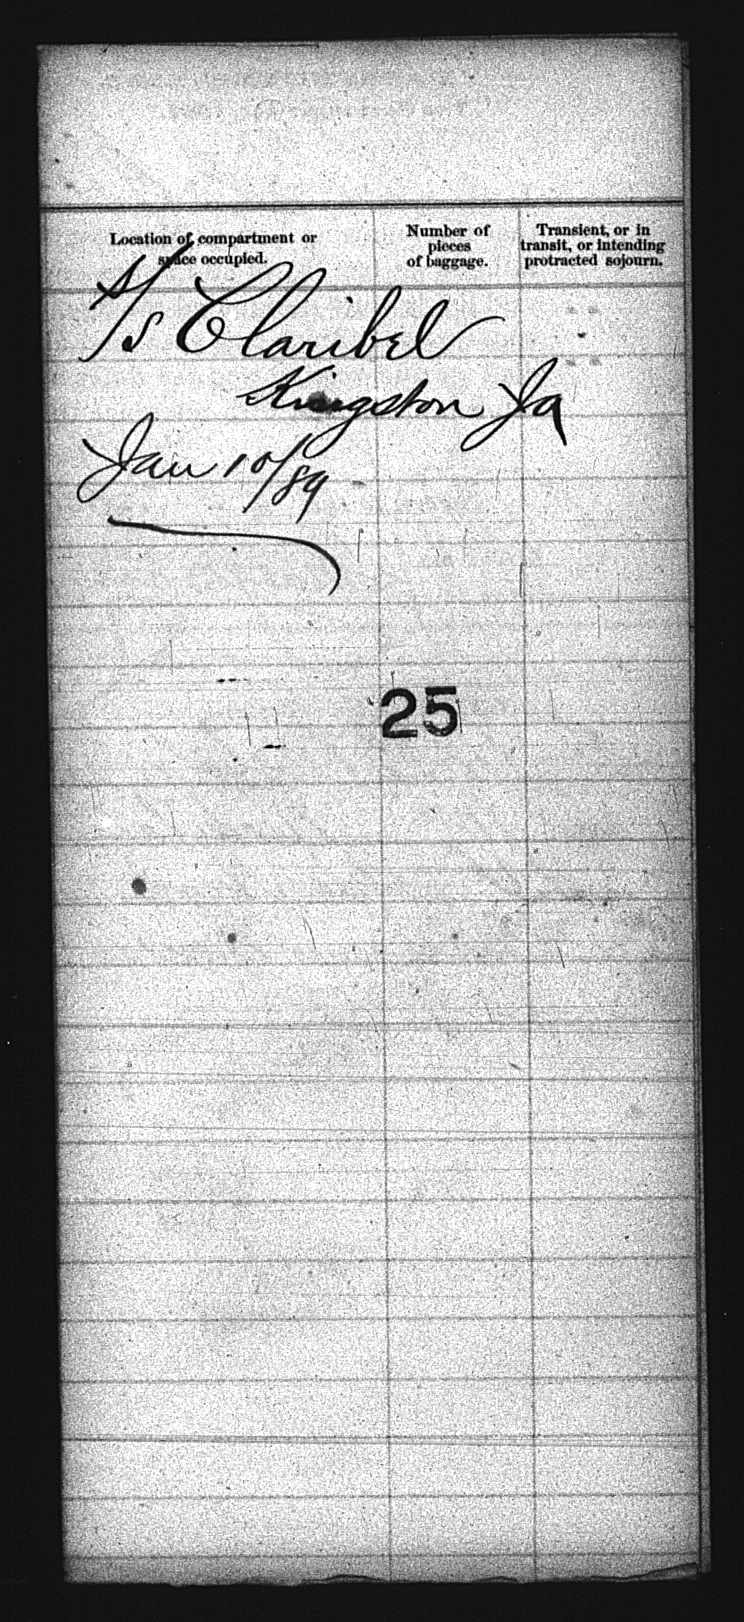 Location of compartment or
space occupied.
Number of
pieces
of baggage.
Transient, or in
transit, or intending
protracted sojourn.
S/S Claribel
Kingston Ja
Jan 10/89
25